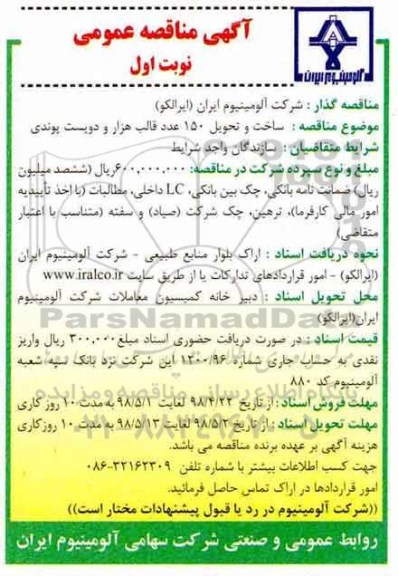 آگهی مناقصه عمومی
نوبت اول
آلومینیوم ایران
مناقصه گذار : شرکت آلومینیوم ایران (ایرالکو)
موضوع مناقصه : ساخت و تحویل ۱۵۰ عدد قالب هزار و دویست پوندی
شرایط متقاضیان : سازندگان واجد شرایط
مبلغ و نوع سپرده شرکت در مناقصه: ۶۰۰,۰۰۰,۰۰۰ریال (ششصد میلیون
ریال) ضمانت نامه بانکی، چک بین بانکی، LC داخلی، مطالبات (با اخذ تأییدیه
امور مالی کارفرما)، ترهین، چک شرکت (صیاد) و سفته (متناسب با اعتبار
متقاضی)
نحوه دریافت اسناد : اراک بلوار منابع طبیعی - شرکت آلومینیوم ایران
(ایرالکو) - امور قراردادهای تدارکات یا از طریق سایت www.iralco.ir
محل تحویل اسناد : دبیر خانه کمیسیون معاملات شرکت آلومینیوم
ایران(ایرالکو)
قیمت اسناد : در صورت دریافت حضوری اسناد مبلغ ۳۰۰,۰۰۰ ریال واریز
نقدی به حساب جاری شماره ۱۲۰۰/۹۶ این شرکت نزد بانک سپه شعبه
آلومینیوم کد ۸۸۰
مهلت فروش اسناد : از تاریخ ۹۸/۴/۲۲ لغایت ۹۸/۵/۱ به مدت ۱۰ روز کاری
مهلت تحویل اسناد : از تاریخ ۹۸/۵/۲ لغایت ۹۸/۵/۱۳ به مدت ۱۰ روزکاری
هزینه آگهی بر عهده برنده مناقصه می باشد.
جهت کسب اطلاعات بیشتر با شماره تلفن ۳۲۱۶۲۳۰۹-۰۸۶
امور قراردادها در اراک تماس حاصل فرمائید.
((شرکت آلومینیوم در رد یا قبول پیشنهادات مختار است))
روابط عمومی و صنعتی شرکت سهامی آلومینیوم ایران
ParsNamadData
پایگاه اطلاع رسانی مناقصه و مزایده